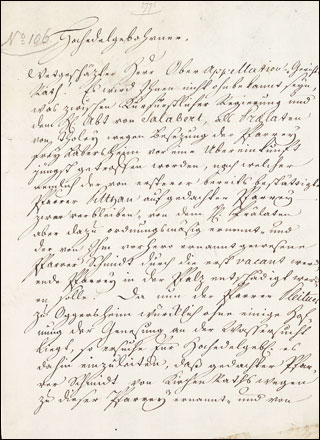 No 196
Hochedelgebohrner,
Wertgeschätzter Herr Ober Appellation-Gerichts
Rath. Es wird Ihnen nicht ohnbekannt seyn,
was zwischen Kurfürstlicher Regierung und
dem H. Abt von Salabert, als Prälaten
von wegen Besezung der Pfarrey
vor eine Übereinkunft
getroffen worden, nach welcher
nemlich der von ersterer bereits bestättigte
Pfarrer auf gedachter Pfarrey
zwar verbleiben, von dem H. Prälaten
aber dazu ordnungsmäsig ernennt und
der von Ihm vorhero ernannt gewesene
Pfarrer Schmidt durch die erst vacant werd
ende Pfarrey in der Pfalz entschädigt word
en solle. Da nun der Pfarrer
zu Oggersheim würklich ohne einige Hof
nung der Genesung an der Wassersucht
liegt, so ersuche Eur Hochedelgebh. es
dahin einzuleiten, daß gedachter Pfar
rer Schmidt, von Kirchen Raths wegen
zu dieser Pfarrey ernennt und von